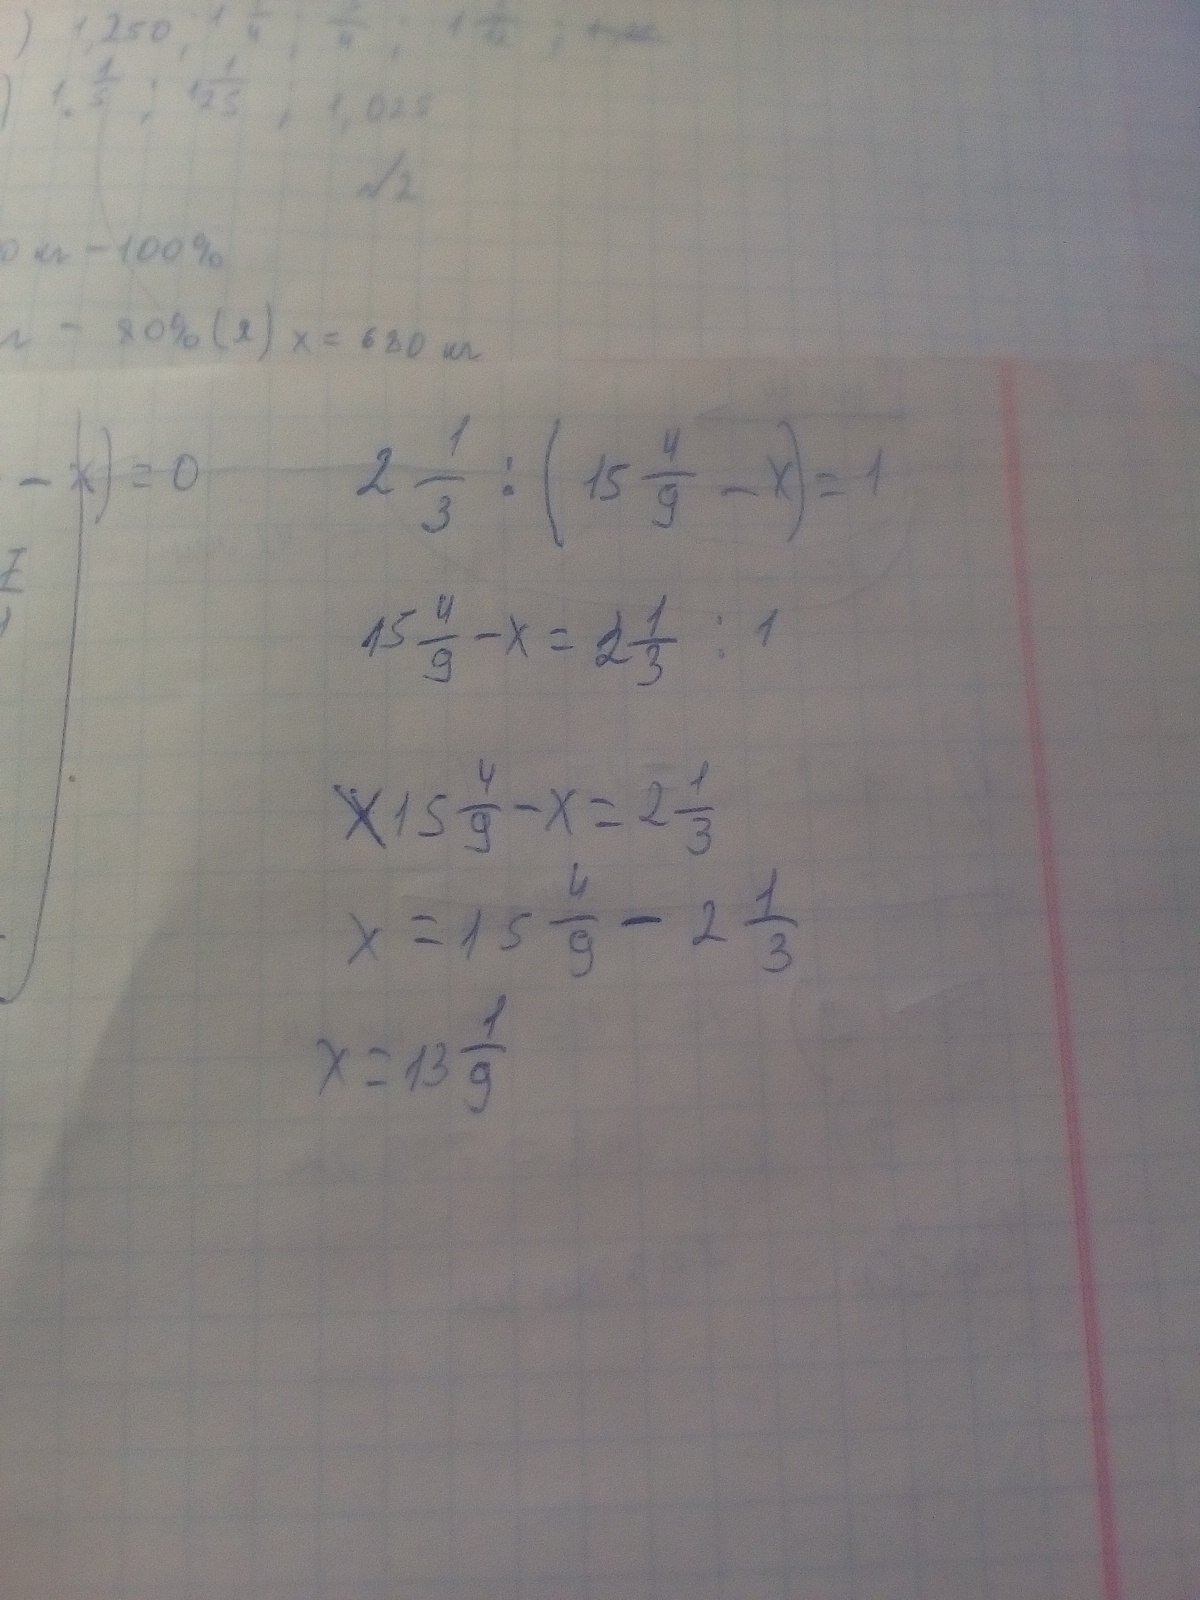 ) 1,250; 1
) 1. 1/5 ; 1 1/25 ; 1,025
√2
0 кг - 100%
- 80% (2) x = 680 кг
- x) = 0
2 1/3 : (15 4/9 - x) = 1
15 4/9 - x = 2 1/3 : 1
15 4/9 - x = 2 1/3
x = 15 4/9 - 2 1/3
x = 13 1/9